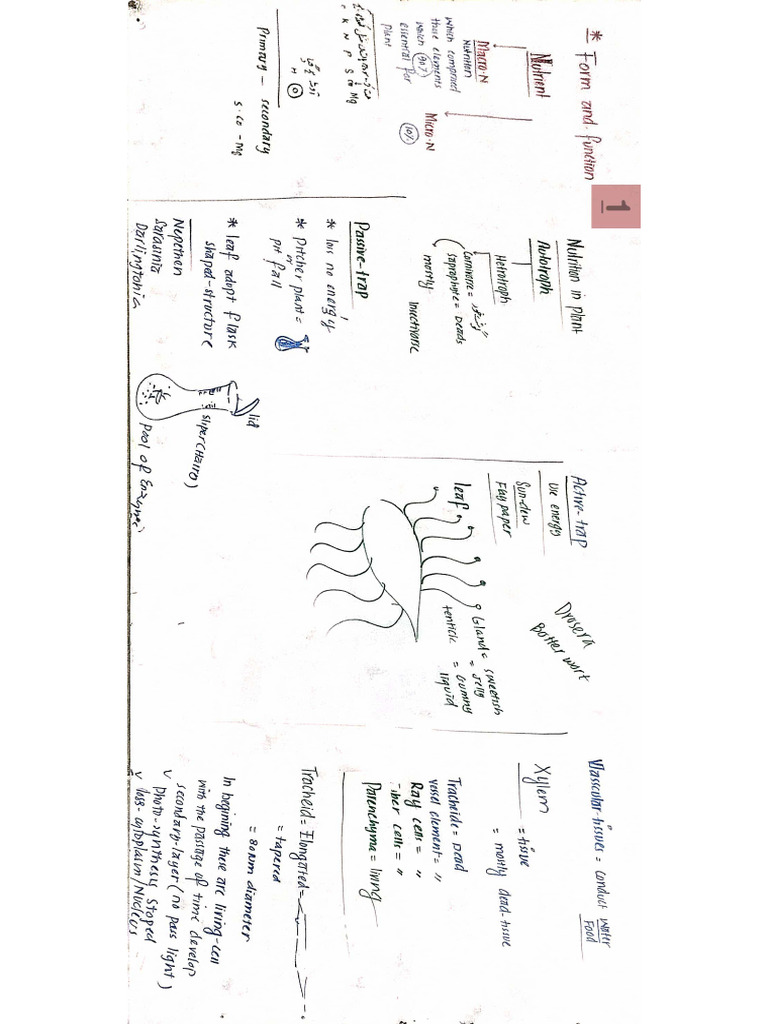 * Form and function
Nutrient
Macro-N
Nutrition
which comprised
those elements
which (90%)
essential for
plant
Micro-N
(10%)
C K N P S Ca Mg
H O
Primary - secondary
S. Ca - Mg
1
Nutrition in plant
Autotroph
Hetrotroph
Carnivore =
Saprophyte = Deads
mostly
Insectivore
Passive-trap
* loss no energy
* Pitcher plant =
or
pit fall
* leaf adopt flask
shaped-structure
Nepethen
Sarasinia
Darlingtonia
lid
Pool of Enzymes
Active-trap
Use energy
Sun-dew
Flay paper
Drosera
Botter wort
leaf
Gland = sweetish
= Jelly
tenticle = Gummy
liquid
Vasscular-tissues = conduct water
Food
Xylem = tissue
= mostly dead-tissue
Tracheide = Dead
vessel element = "
Ray cells = "
Fiber cells = "
Parenchyma = living
Tracheid = Elongated =
= tapered
= 80Nm diameter
In begining these are living-cell
with the passage of time develop
secondary-layer (no pass light)
✓ photo-synthesy stoped
✓ loss-cytoplasm/Nucleus